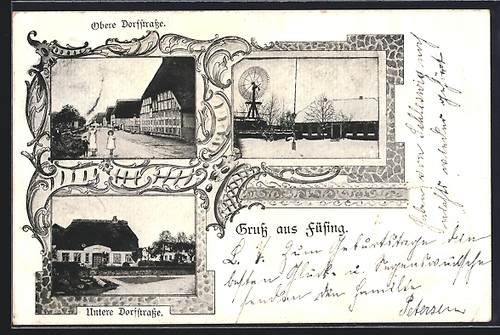 Obere Dorfstraße.
Gruß aus Füsing.
L. F. Zum Geburtstage den
besten Glück- u. Segenswünsche
senden dir Familie
Petersen
Untere Dorfstraße.
von Schleswig